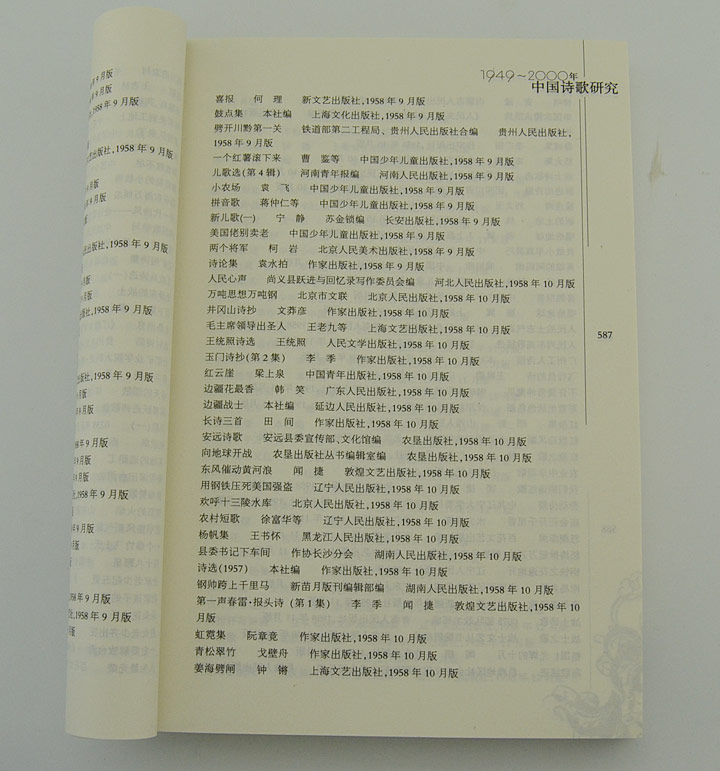 年 9 月版
年 9 月版
,1958 年 9 月版
出版社,1958 年 9 月版
年 9 月版
年 9 月版
出版社,1958 年 9 月版
月版
月版
出版社,1958 年 9 月版
出版社,1958 年 9 月版
月版
年 9 月版
年 9 月版
年 9 月版
月版
社,1958 年 9 月版
年 9 月版
年 9 月版
月版
1958 年 9 月版
社,1958 年 9 月版
月版
1949~2000年
中国诗歌研究
喜报 何 理 新文艺出版社,1958 年 9 月版
鼓点集 本社编 上海文化出版社,1958 年 9 月版
劈开川黔第一关 铁道部第二工程局、贵州人民出版社合编 贵州人民出版社,
1958 年 9 月版
一个红薯滚下来 曹 鉴等 中国少年儿童出版社,1958 年 9 月版
儿歌选(第 4 辑) 河南青年报编 河南人民出版社,1958 年 9 月版
小农场 袁 飞 中国少年儿童出版社,1958 年 9 月版
拼音歌 蒋仲仁等 中国少年儿童出版社,1958 年 9 月版
新儿歌(一) 宁 静 苏金锁编 长安出版社,1958 年 9 月版
美国佬别卖老 中国少年儿童出版社,1958 年 9 月版
两个将军 柯 岩 北京人民美术出版社,1958 年 9 月版
诗论集 袁水拍 作家出版社,1958 年 9 月版
人民心声 尚义县跃进与回忆录写作委员会编 河北人民出版社,1958 年 10 月版
万吨思想万吨钢 北京市文联 北京人民出版社,1958 年 10 月版
井冈山诗抄 文莽彦 作家出版社,1958 年 10 月版
毛主席领导出圣人 王老九等 上海文艺出版社,1958 年 10 月版
王统照诗选 王统照 人民文学出版社,1958 年 10 月版
玉门诗抄(第 2 集) 李 季 作家出版社,1958 年 10 月版
红云崖 梁上泉 中国青年出版社,1958 年 10 月版
边疆花最香 韩 笑 广东人民出版社,1958 年 10 月版
边疆战士 本社编 延边人民出版社,1958 年 10 月版
长诗三首 田 间 作家出版社,1958 年 10 月版
安远诗歌 安远县委宣传部、文化馆编 农垦出版社,1958 年 10 月版
向地球开战 农垦出版社丛书编辑室编 农垦出版社,1958 年 10 月版
东风催动黄河浪 闻 捷 敦煌文艺出版社,1958 年 10 月版
用钢铁压死美国强盗 辽宁人民出版社,1958 年 10 月版
欢呼十三陵水库 北京人民出版社,1958 年 10 月版
农村短歌 徐富华等 辽宁人民出版社,1958 年 10 月版
杨帆集 王书怀 黑龙江人民出版社,1958 年 10 月版
县委书记下车间 作协长沙分会 湖南人民出版社,1958 年 10 月版
诗选(1957) 本社编 作家出版社,1958 年 10 月版
钢帅跨上千里马 新苗月版刊编辑部编 湖南人民出版社,1958 年 10 月版
第一声春雷·报头诗 (第 1 集) 李 季 闻 捷 敦煌文艺出版社,1958 年 10
月版
虹霓集 阮章竞 作家出版社,1958 年 10 月版
青松翠竹 戈壁舟 作家出版社,1958 年 10 月版
姜海劈闸 钟 锵 上海文艺出版社,1958 年 10 月版
587